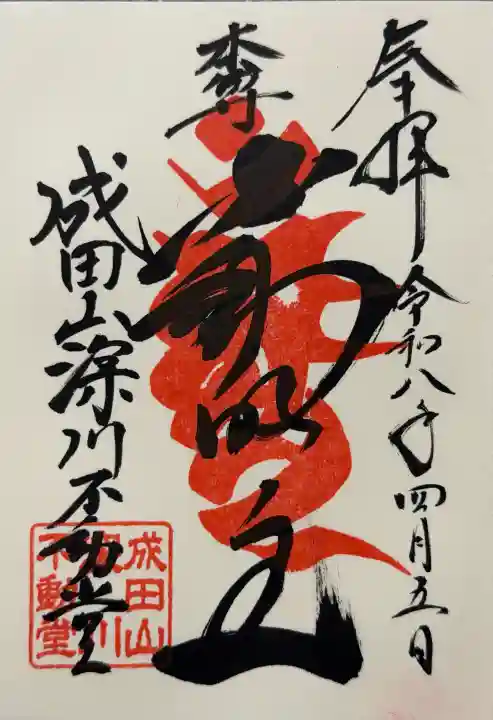 奉拝
令和八年四月五日
奉
不動明王
成田山深川不動堂
成田山
深川
不動堂